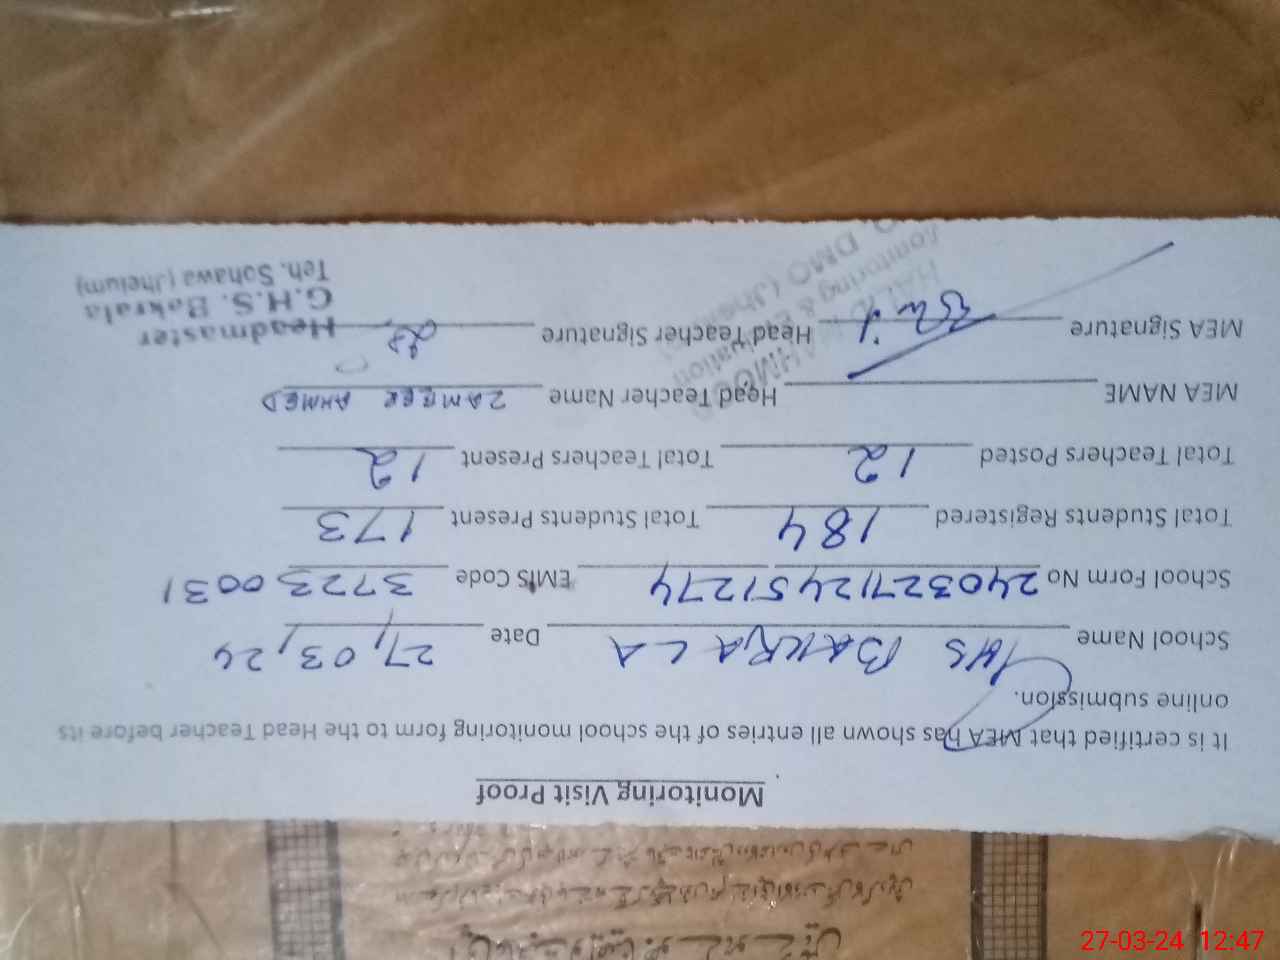 Monitoring Visit Proof
It is certified that MEA has shown all entries of the school monitoring form to the Head Teacher before its
online submission.
School Name GHS BAKRALA Date 27/03/24
School Form No 24032712451274 EMIS Code 37230031
Total Students Registered 184 Total Students Present 173
Total Teachers Posted 12 Total Teachers Present 12
MEA NAME Head Teacher Name ZAMEER AHMED
MEA Signature Head Teacher Signature
Headmaster
G.H.S. Bakrala
Teh. Sohawa (Jhelum)
Monitoring &
DMO (Jhelum)
27-03-24 12:47